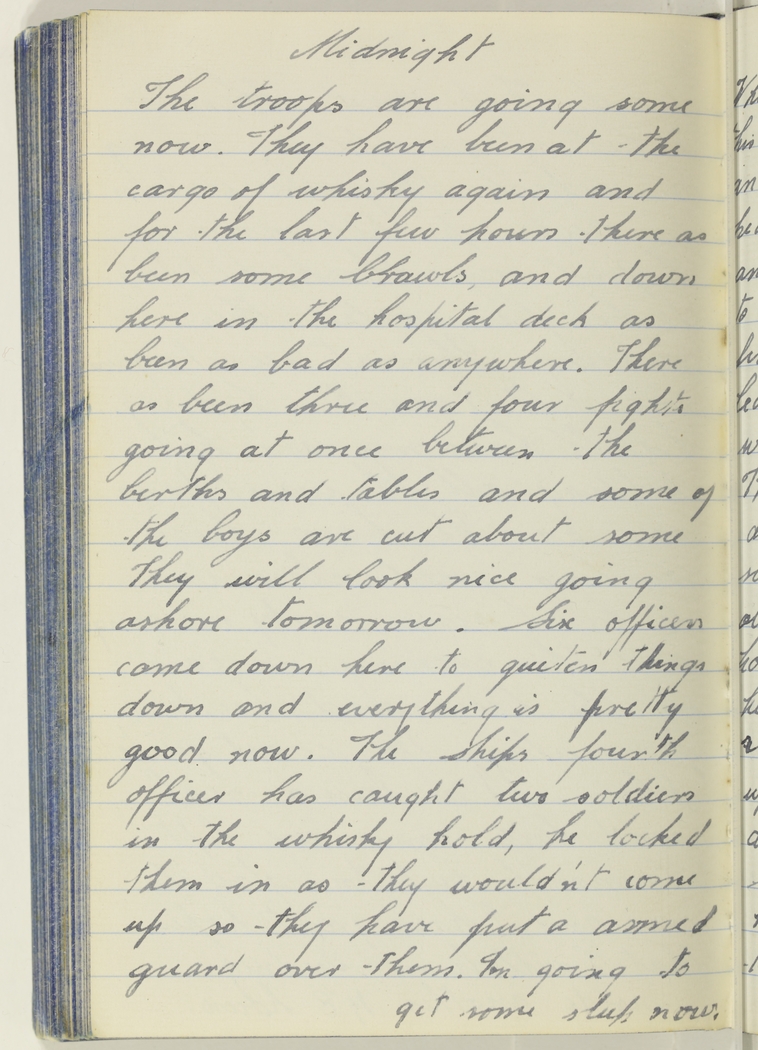 Midnight
The troops are going some
now. They have been at the
cargo of whisky again and
for the last few hours there as
been some brawls, and down
here in the hospital deck as
been as bad as anywhere. There
as been three and four fights
going at once between the
berths and tables and some of
the boys are cut about some
They will look nice going
ashore tomorrow. Six officers
came down here to quiten things
down and everything is pretty
good now. The ships fourth
officer has caught two soldiers
in the whisky hold, he locked
them in as they would'nt come
up so they have put a armed
guard over them. Im going to
get some sleep now.